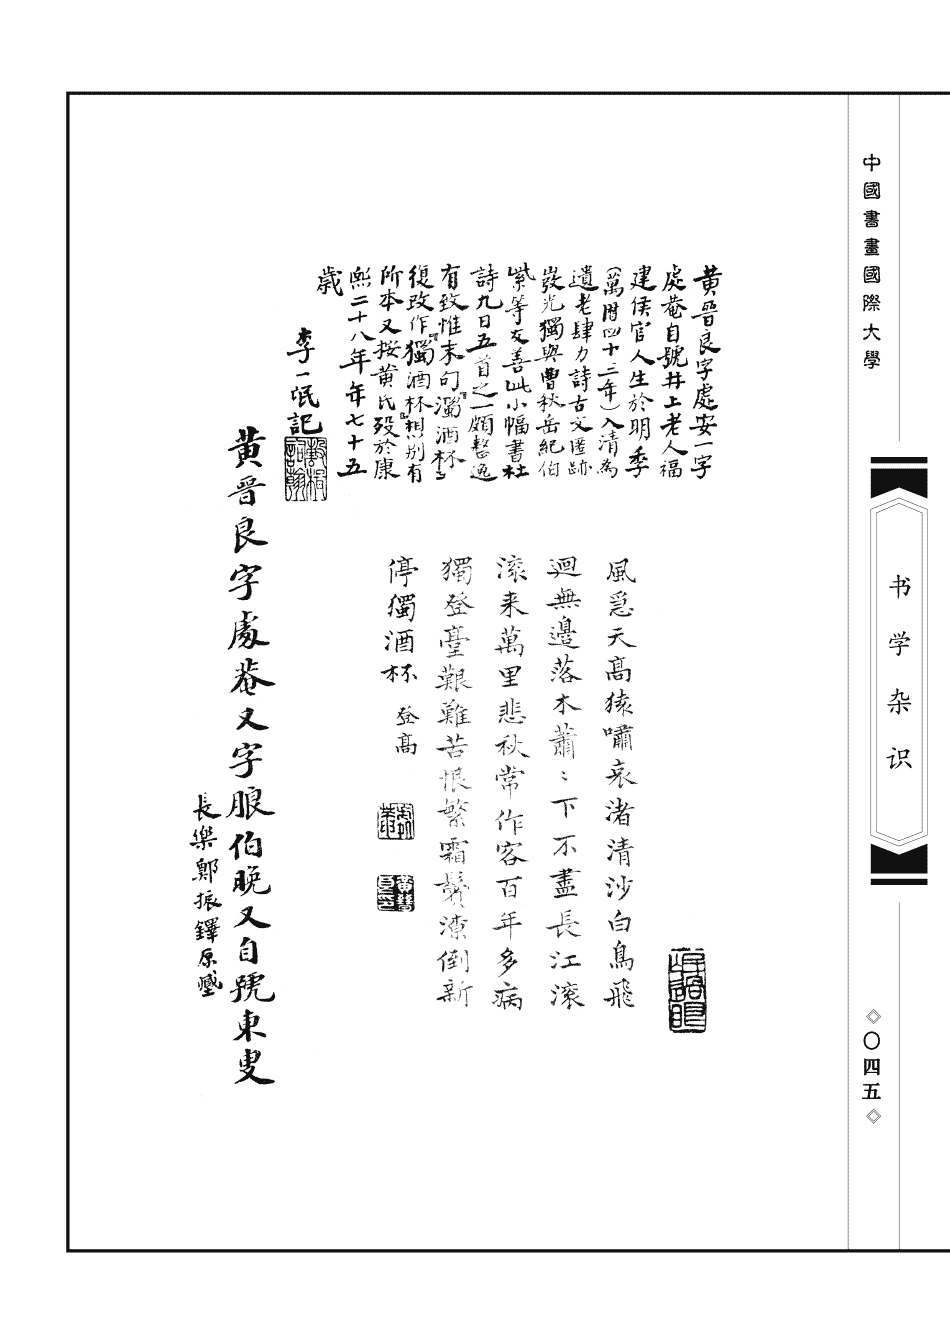 中國書畫國際大學
书学杂识
〇四五
黄晋良字處安一字
處菴自號井上老人福
建侯官人生於明季
(萬曆四十三年)入清為
遺老肆力詩古文匿跡
嵚光獨與曹秋岳紀伯
紫等友善此小幅書杜
詩九日五首之一頗整逸
有致惟末句『濁酒杯』
復改作『獨酒杯』想别有
所本又按黄氏殁於康
熙二十八年年七十五
歲
李一氓記
風急天高猿嘯哀渚清沙白鳥飛
迴無邊落木蕭〻下不盡長江滚
滚来萬里悲秋常作客百年多病
獨登臺艱難苦恨繁霜鬢潦倒新
停獨酒杯 登高
黄晋良字處菴又字朖伯晚又自號東叟
長樂鄭振鐸原藏